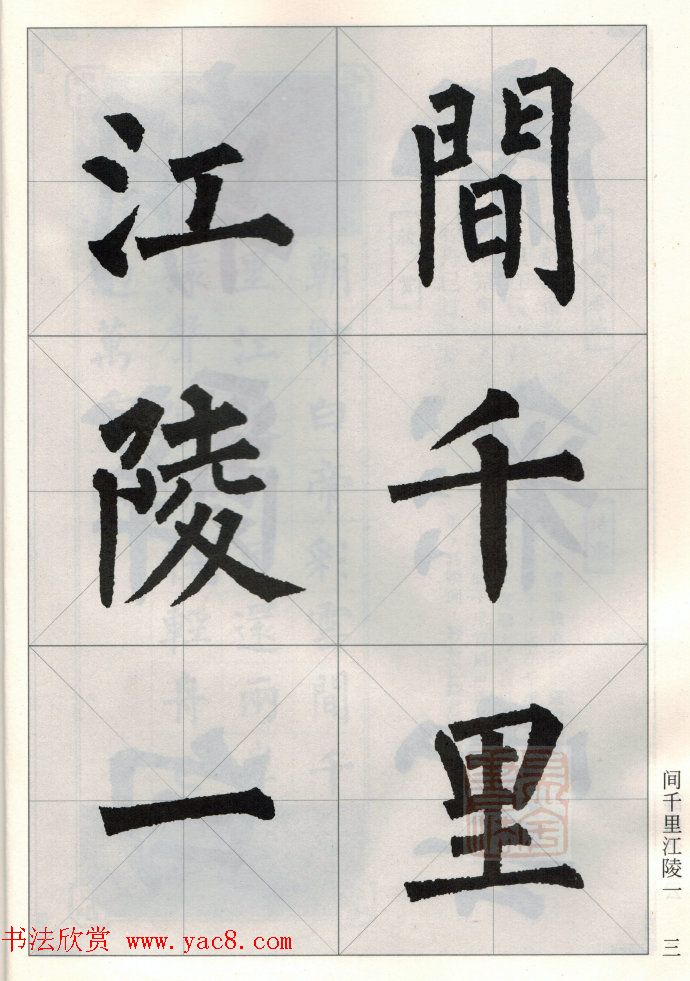 間千里
江陵一
间千里江陵一
三
书法欣赏 www.yac8.com